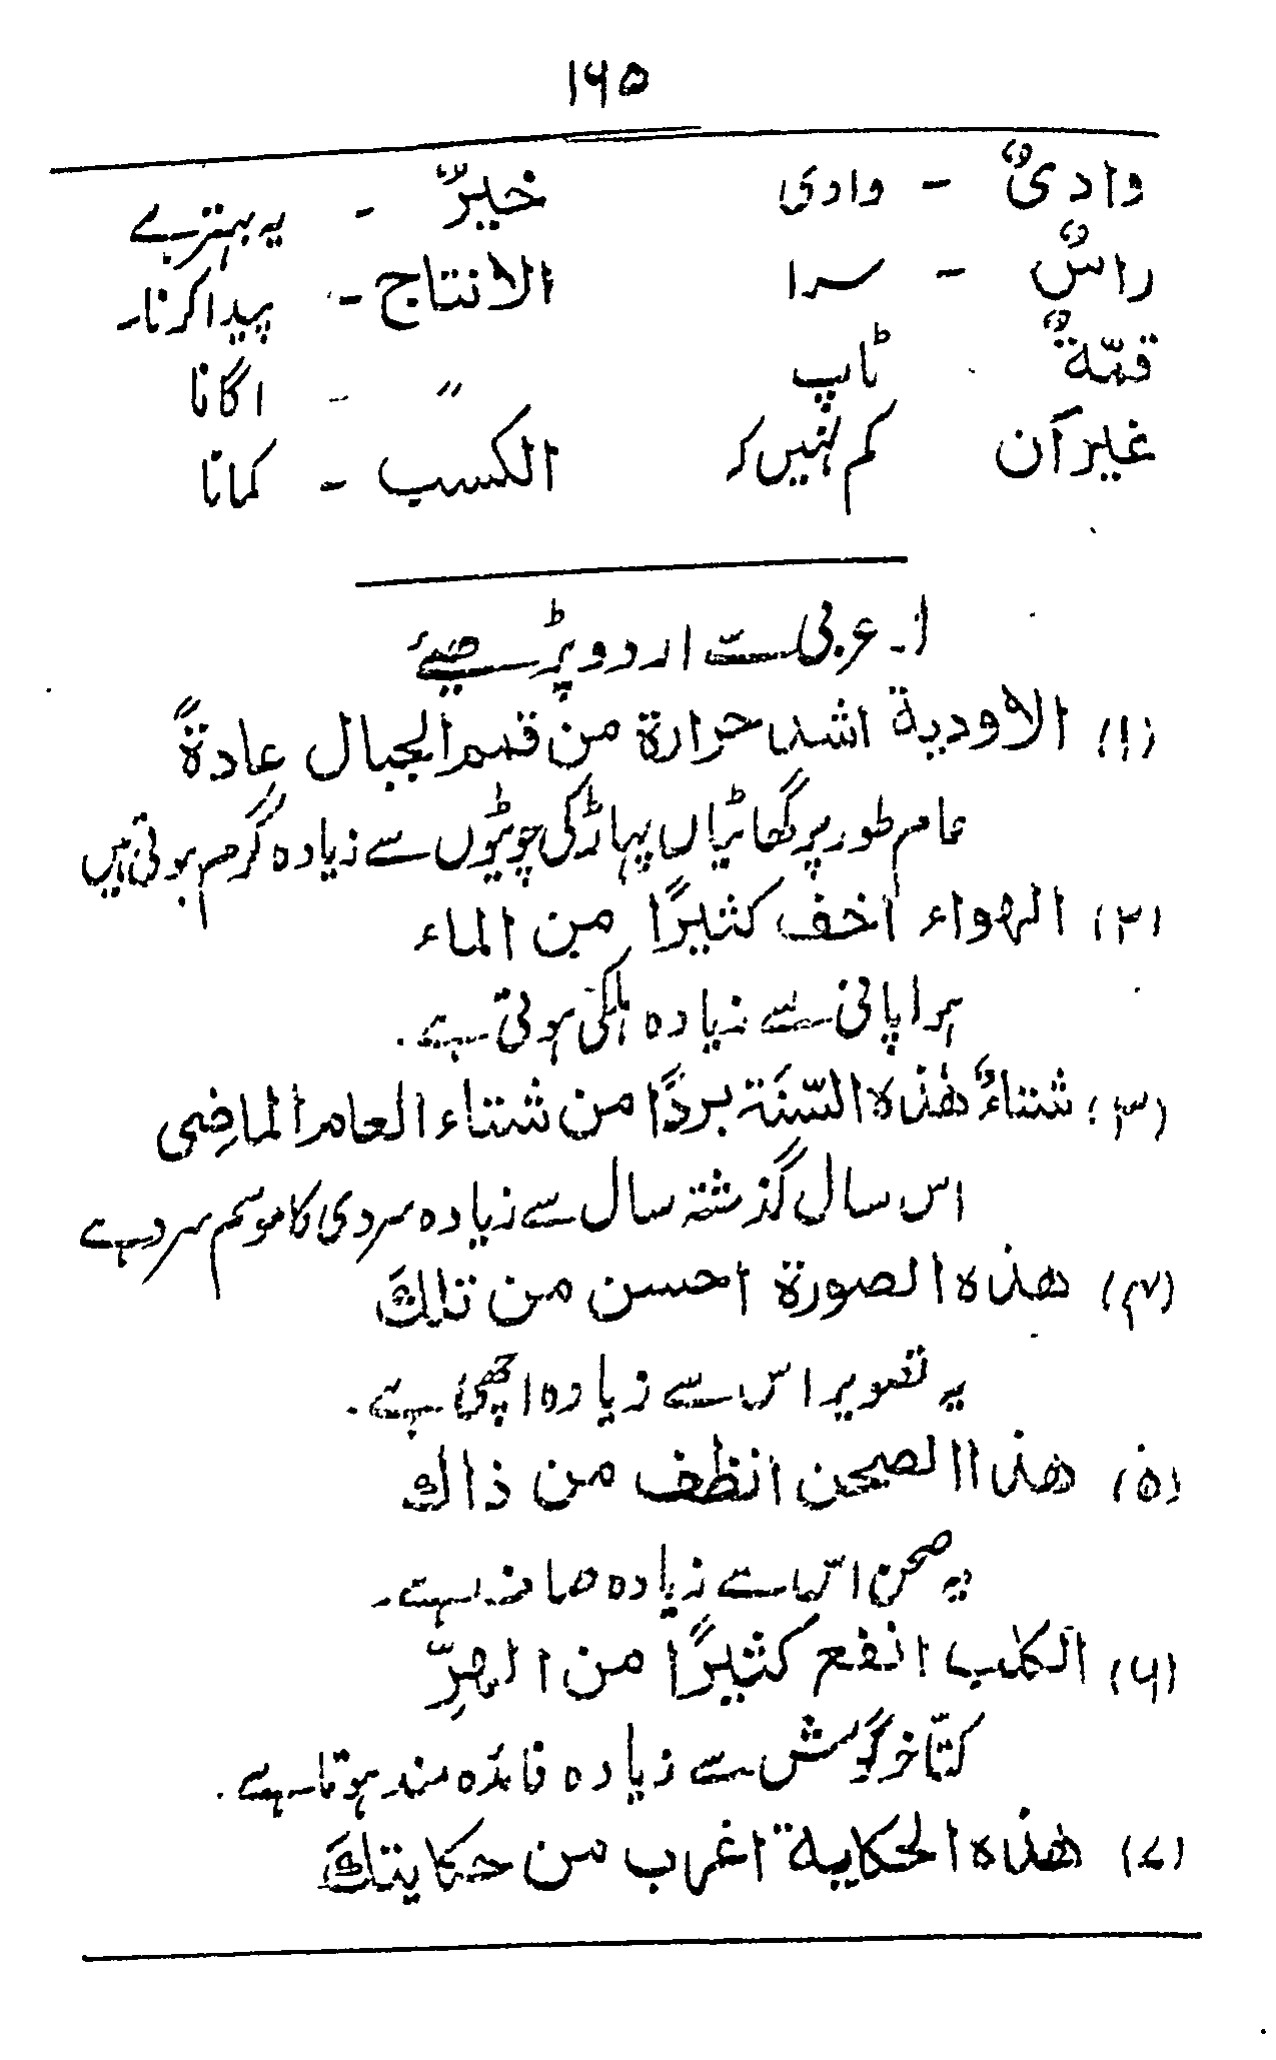 ۱۶۵
وادیٌ - وادی خیرٌ - یہ بہتر ہے
راسٌ - سرا الانتاج - پیدا کرنا۔
قمّةٌ ٹاپ " - اگانا
غیر آن کم نہیں کہ الکسب - کمانا
۱۔ عربی سے اردو پڑھیئے
(۱) الاودیة اشد حرارة من قمم الجبال عادةً
عام طور پر گھاٹیاں پہاڑ کی چوٹیوں سے زیادہ گرم ہوتی ہیں
(۲) الهواء اخف کثیرًا من الماء
ہوا پانی سے زیادہ ہلکی ہوتی ہے۔
(۳) شتاءُ هٰذه السّنَة بردًا من شتاء العام الماضِی
اس سال گذشتہ سال سے زیادہ سردی کا موسم سرد ہے
(۴) هذه الصورة احسن من تلكَ
یہ تصویر اس سے زیادہ اچھی ہے۔
(۵) هذا الصحن انظف من ذاك
یہ صحن اس سے زیادہ صاف ہے۔
(۶) الکلب انفع کثیرًا من الهِرِّ
کتّا خرگوش سے زیادہ فائدہ مند ہوتا ہے۔
(۷) هذه الحکایة اغرب من حکایتكَ